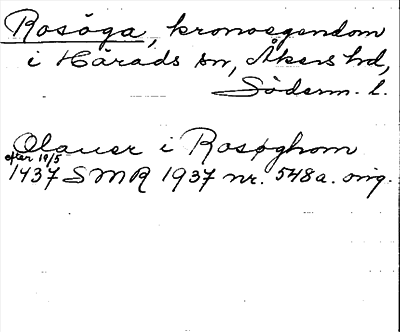 Rosöga, kronoegendom
i Härads sn, Åkers hd,
Söderm. l.
Olauer i Rosøghom
efter 19/5
1437 SMR 1937 nr. 548a. orig.